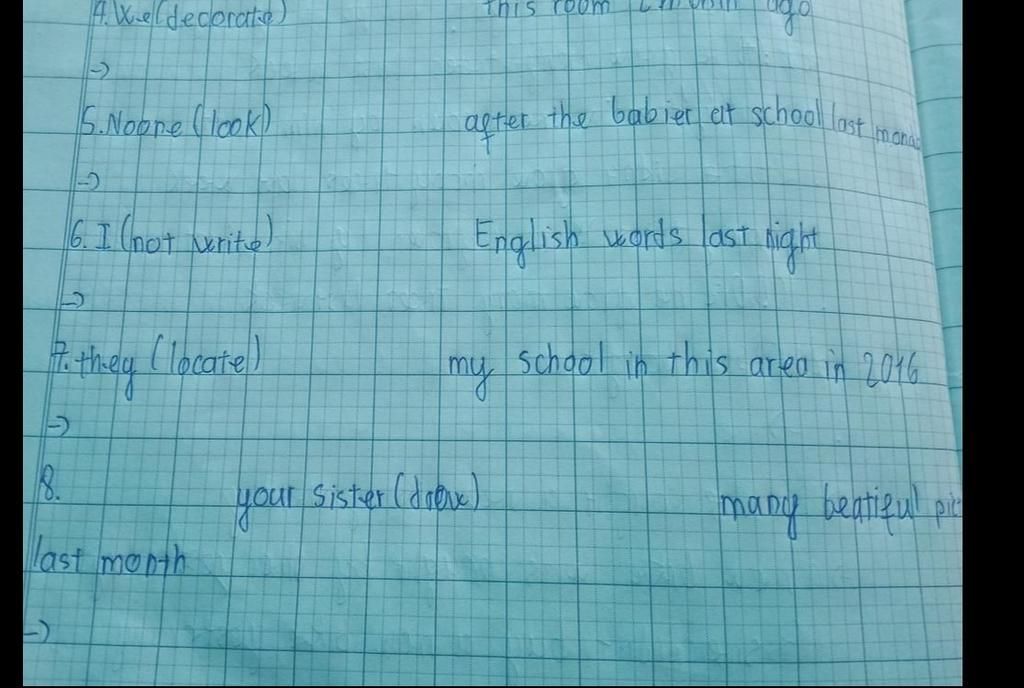 4. We (decorate) this room ago
->
5. Noone (look) after the babier at school last
->
6. I (not write) English words last night
->
7. they (locate) my school in this area in 2016
->
8. your sister (draw) many beatiful
last month
->